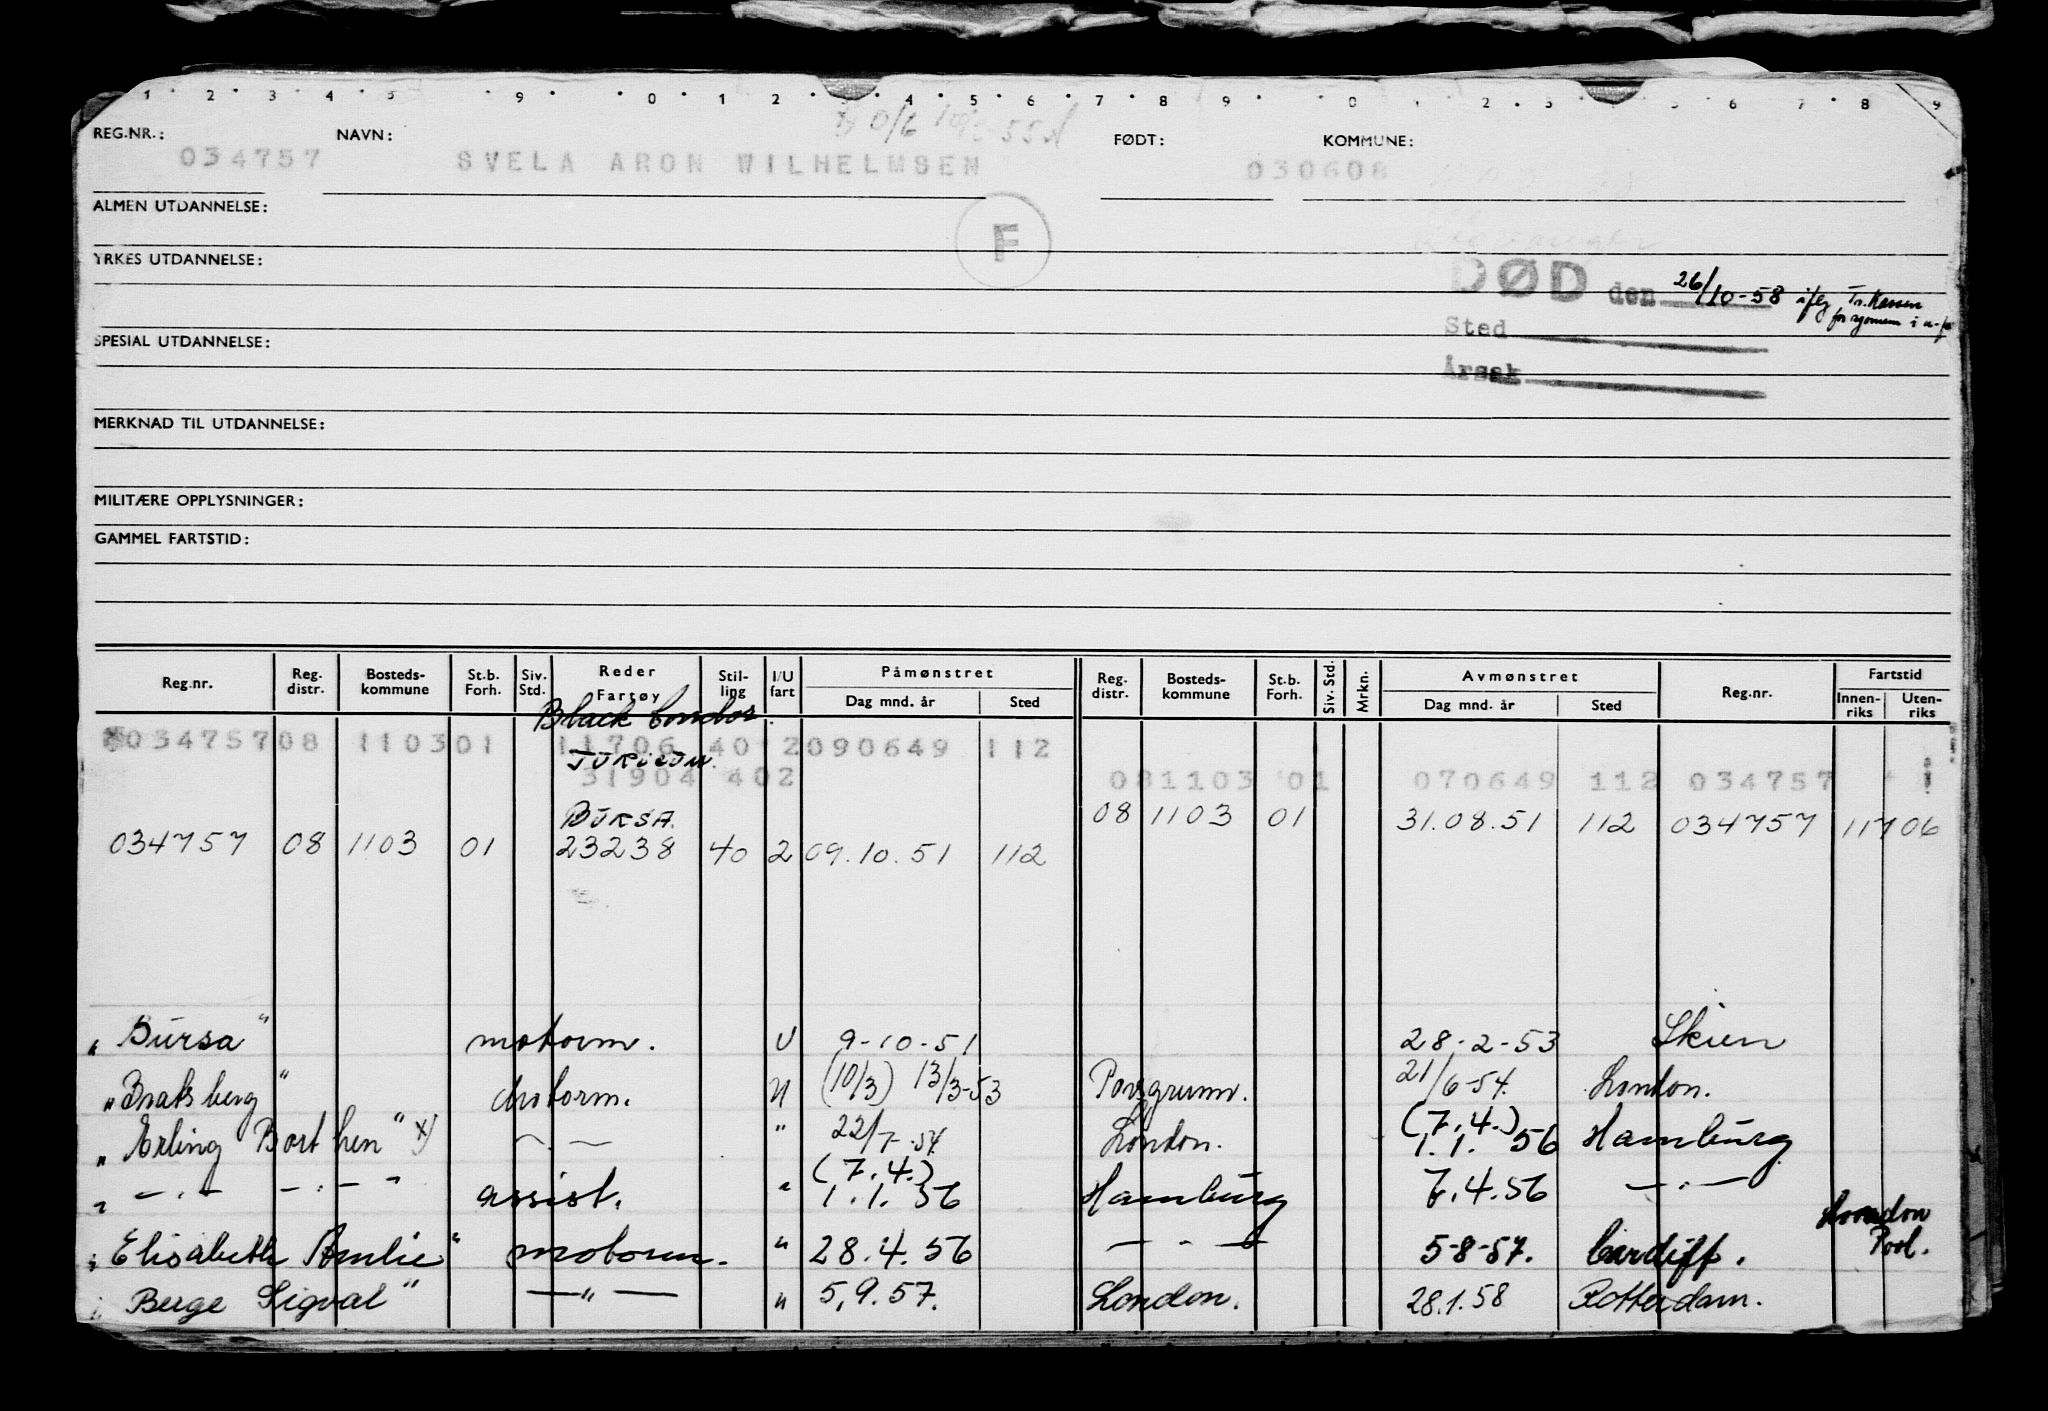 1 2 3 4 5 9 0 1 2 3 4 5 6 7 8 9 0 1 2 3 5 6 7 8 9
REG.NR.: NAVN: FØDT: KOMMUNE:
034757 SVELA ARON WILHELMSEN 030608
ALMEN UTDANNELSE:
F
YRKES UTDANNELSE:
DØD den 26/10-58 iflg. Tr.Kassen
for sjømenn i u-f
Sted
SPESIAL UTDANNELSE:
Årsak
MERKNAD TIL UTDANNELSE:
MILITÆRE OPPLYSNINGER:
GAMMEL FARTSTID:
Reg.nr. Reg. distr. Bosteds-kommune St.b. Forh. Siv. Std. Reder Fartøy Stil-ling I/U fart Påmønstret Dag mnd. år Sted Reg. distr. Bosteds-kommune St.b. Forh. Siv. Std. Mrkn. Avmønstret Dag mnd. år Sted Reg.nr. Fartstid Innen-riks Uten-riks
Black Condor
034757 08 1103 01 11706 40 2 090649 112
31904 402 08 1103 01 070649 112 034757
BURSA. 08 1103 01 31.08.51 112 034757 117 06
034757 08 1103 01 23238 40 2 09.10.51 112
"Bursa" motorm. U 9-10-51 28-2-53 Skien
"Bratsberg" motorm. " (10/3) 13/3-53 Porsgrunn. 21/6-54. London.
"Erling Borthen" x) — — " 22/7-54 London. (7.4.) 1.1. 56 Hamburg
" — . — — . — " assist. " (7.4.) 1.1. 56 Hamburg 7.4.56 — " —
"Elisabeth Amlie" motorm. " 28.4.56 — " — 5-8-57. Cardiff. London Pool.
"Berge Sigval" — " — " 5.9.57. London. 28.1.58 Rotterdam.